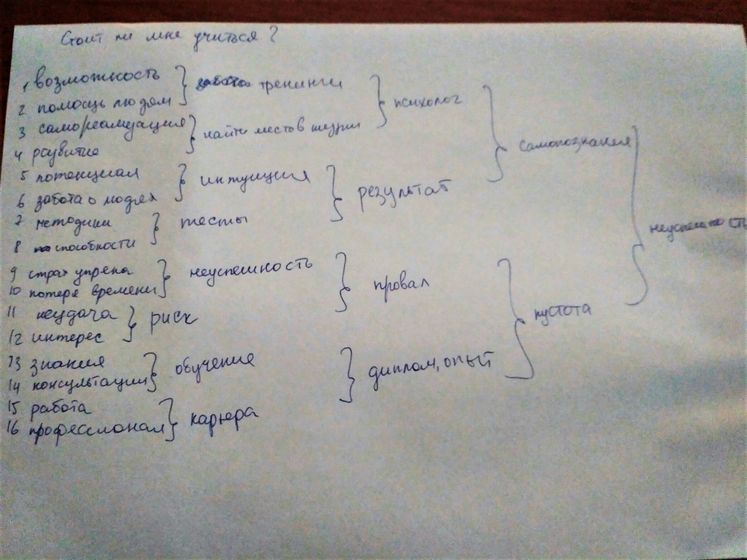 Стоит ли мне учиться?
1 возможность } тренинги
2 помощь людям
} психолог
3 самореализация } найти место в жизни
4 развитие
} самопознания
5 потенциал } интуиция
6 забота о людях
} результат
7 методики } тесты
8 способности
} неуспешность
9 страх упрека } неуспешность
10 потеря времени
} провал
11 неудача } риск
12 интерес
} пустота
13 знания } обучение
14 консультации
} диплом, опыт
15 работа } карьера
16 профессионал